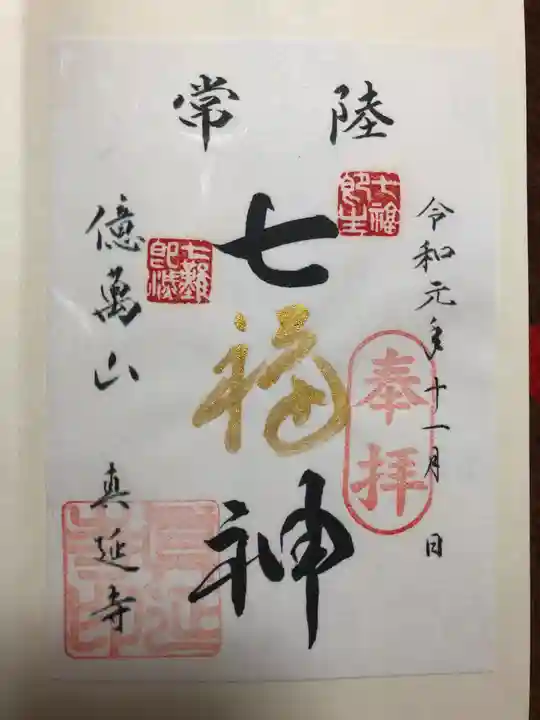 令和元年十一月 日
奉拝
常陸
七福即生
七福神
七難即滅
億萬山 真延寺